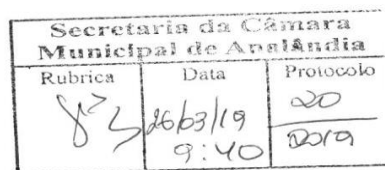 Secretaria da Câmara
Municipal de Analândia
Rubrica Data Protocolo
26/03/19 20
9:40 2019